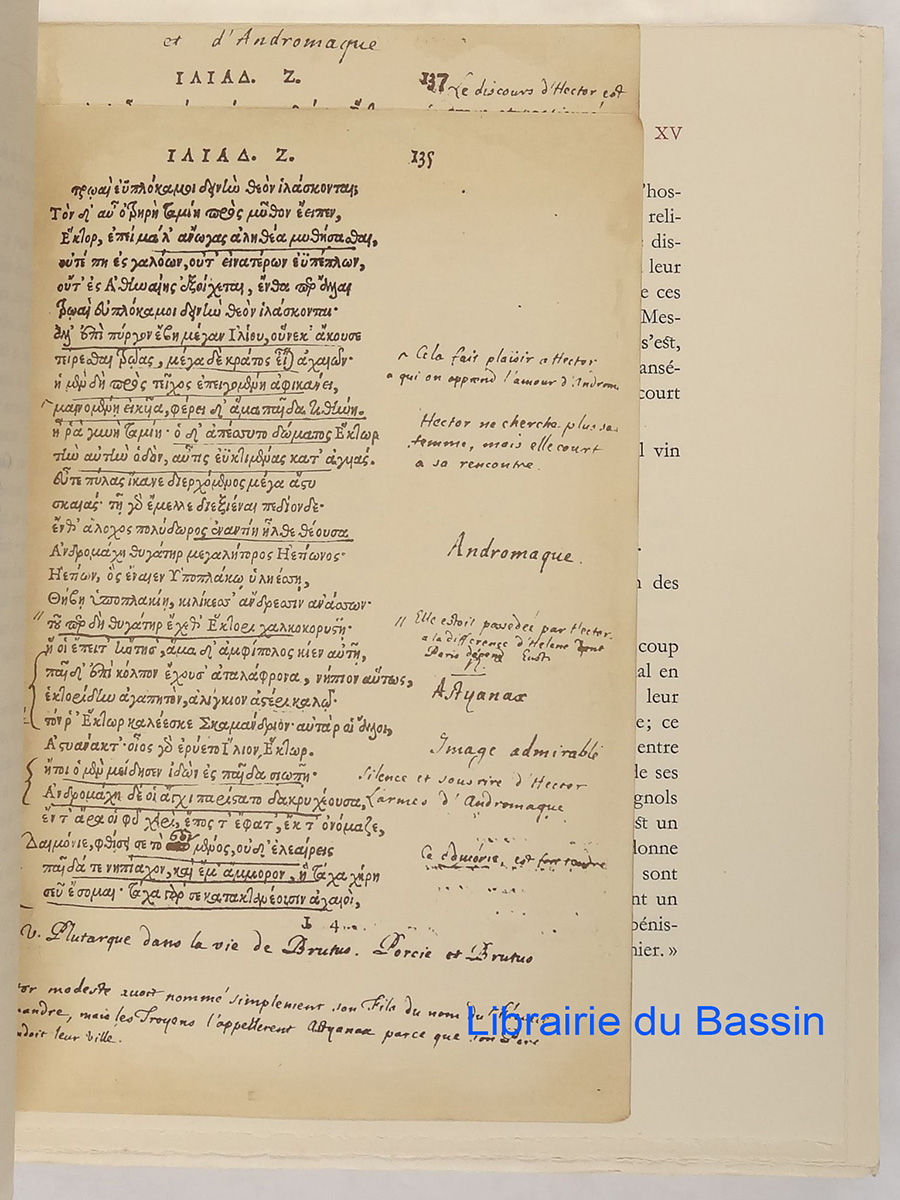 et d'Andromaque
ΙΛΙΑΔ. Ζ. 137
Le discours d'Hector est
ΙΛΙΑΔ. Ζ. 135
τρωαὶ ἐϋπλόκαμοι δεινὴν θεὸν ἱλάσκονται;
Τὸν δ' αὖ ὀτρηρὴ ταμίη πρὸς μῦθον ἔειπεν,
Ἕκτορ, ἐπεὶ μάλ' ἄνωγας ἀληθέα μυθήσασθαι,
οὔτέ πη ἐς γαλόων, οὔτ' εἰνατέρων ἐϋπέπλων,
οὔτ' ἐς Ἀθηναίης ἐξοίχεται, ἔνθα περ ἄλλαι
τρωαὶ ἐυπλόκαμοι δεινὴν θεὸν ἱλάσκονται·
ἀλλ' ἐπὶ πύργον ἔβη μέγαν Ἰλίου, οὕνεκ' ἄκουσε
τείρεσθαι τρῶας, μέγα δὲ κράτος εἶναι ἀχαιῶν·
ἡ μὲν δὴ πρὸς τεῖχος ἐπειγομένη ἀφικάνει,
μαινομένῃ εἰκυῖα, φέρει δ' ἅμα παῖδα τιθήνη.
ἦ ῥα γυνὴ ταμίη· ὁ δ' ἀπέσσυτο δώματος Ἕκτωρ
τὴν αὐτὴν ὁδὸν, αὖτις ἐϋκτιμένας κατ' ἀγυιάς.
εὖτε πύλας ἵκανε διερχόμενος μέγα ἄστυ
σκαιάς· τῇ γὸ ἔμελλε διεξιέναι πεδίονδε·
ἔνθ' ἄλοχος πολύδωρος ἐναντίη ἦλθε θέουσα
Ἀνδρομάχη θυγάτηρ μεγαλήτορος Ἠετίωνος·
Ἠετίων, ὃς ἔναιεν Ὑποπλάκῳ ὑληέσσῃ,
Θήβῃ ὑποπλακίῃ, κιλίκεσσ' ἄνδρεσσιν ἀνάσσων·
τοῦ περ δὴ θυγάτηρ ἔχεθ' Ἕκτορι χαλκοκορυστῇ·
ἥ οἱ ἔπειτ' ἤντησ', ἅμα δ' ἀμφίπολος κίεν αὐτῇ,
παῖδ' ἐπὶ κόλπον ἔχουσ' ἀταλάφρονα, νήπιον αὔτως,
ἑκτορίδην ἀγαπητὸν, ἀλίγκιον ἀστέρι καλῷ·
τόν ῥ' Ἕκτωρ καλέεσκε Σκαμάνδριον· αὐτὰρ οἱ ἄλλοι,
Ἀστυάνακτ'· οἶος γὸ ἐρύετο Ἴλιον, Ἕκτωρ.
ἤτοι ὁ μὲν μείδησεν ἰδὼν ἐς παῖδα σιωπῇ·
Ἀνδρομάχη δέ οἱ ἄγχι παρίστατο δακρυχέουσα,
ἔν τ' ἄρα οἱ φῦ χειρὶ, ἔπος τ' ἔφατ', ἔκ τ' ὀνόμαζε,
Δαιμόνιε, φθίσει σε τὸ σὸν μένος, οὐδ' ἐλεαίρεις
παῖδά τε νηπίαχον, καὶ ἔμ' ἄμμορον, ἣ τάχα χήρη
σεῦ ἔσομαι· τάχα γάρ σε κατακτενέουσιν ἀχαιοὶ,
Cela fait plaisir a Hector
a qui on apprend l'amour d'Androm.
Hector ne cherche plus sa
femme, mais elle court
a sa rencontre.
Andromaque.
Elle estoit possedée par Hector
a la difference d'Helene dont
Paris Eust.
Astyanax
Image admirable
Silence et sousrire d'Hector
Larmes d'Andromaque
Ce δαιμόνιε, est fort tendre
4
v. Plutarque dans la vie de Brutus. Porcie et Brutus
tor modeste avoit nommé simplement son Fils du nom du
andre, mais les Troyens l'appellerent Astyanax parce que son Pere
ndoit leur ville.
XV
'hos-
reli-
dis-
leur
e ces
Mes-
s'est,
ansé-
court
l vin
n des
coup
al en
leur
e; ce
entre
de ses
gnols
st un
donne
sont
nt un
bénis-
nier. »
Librairie du Bassin